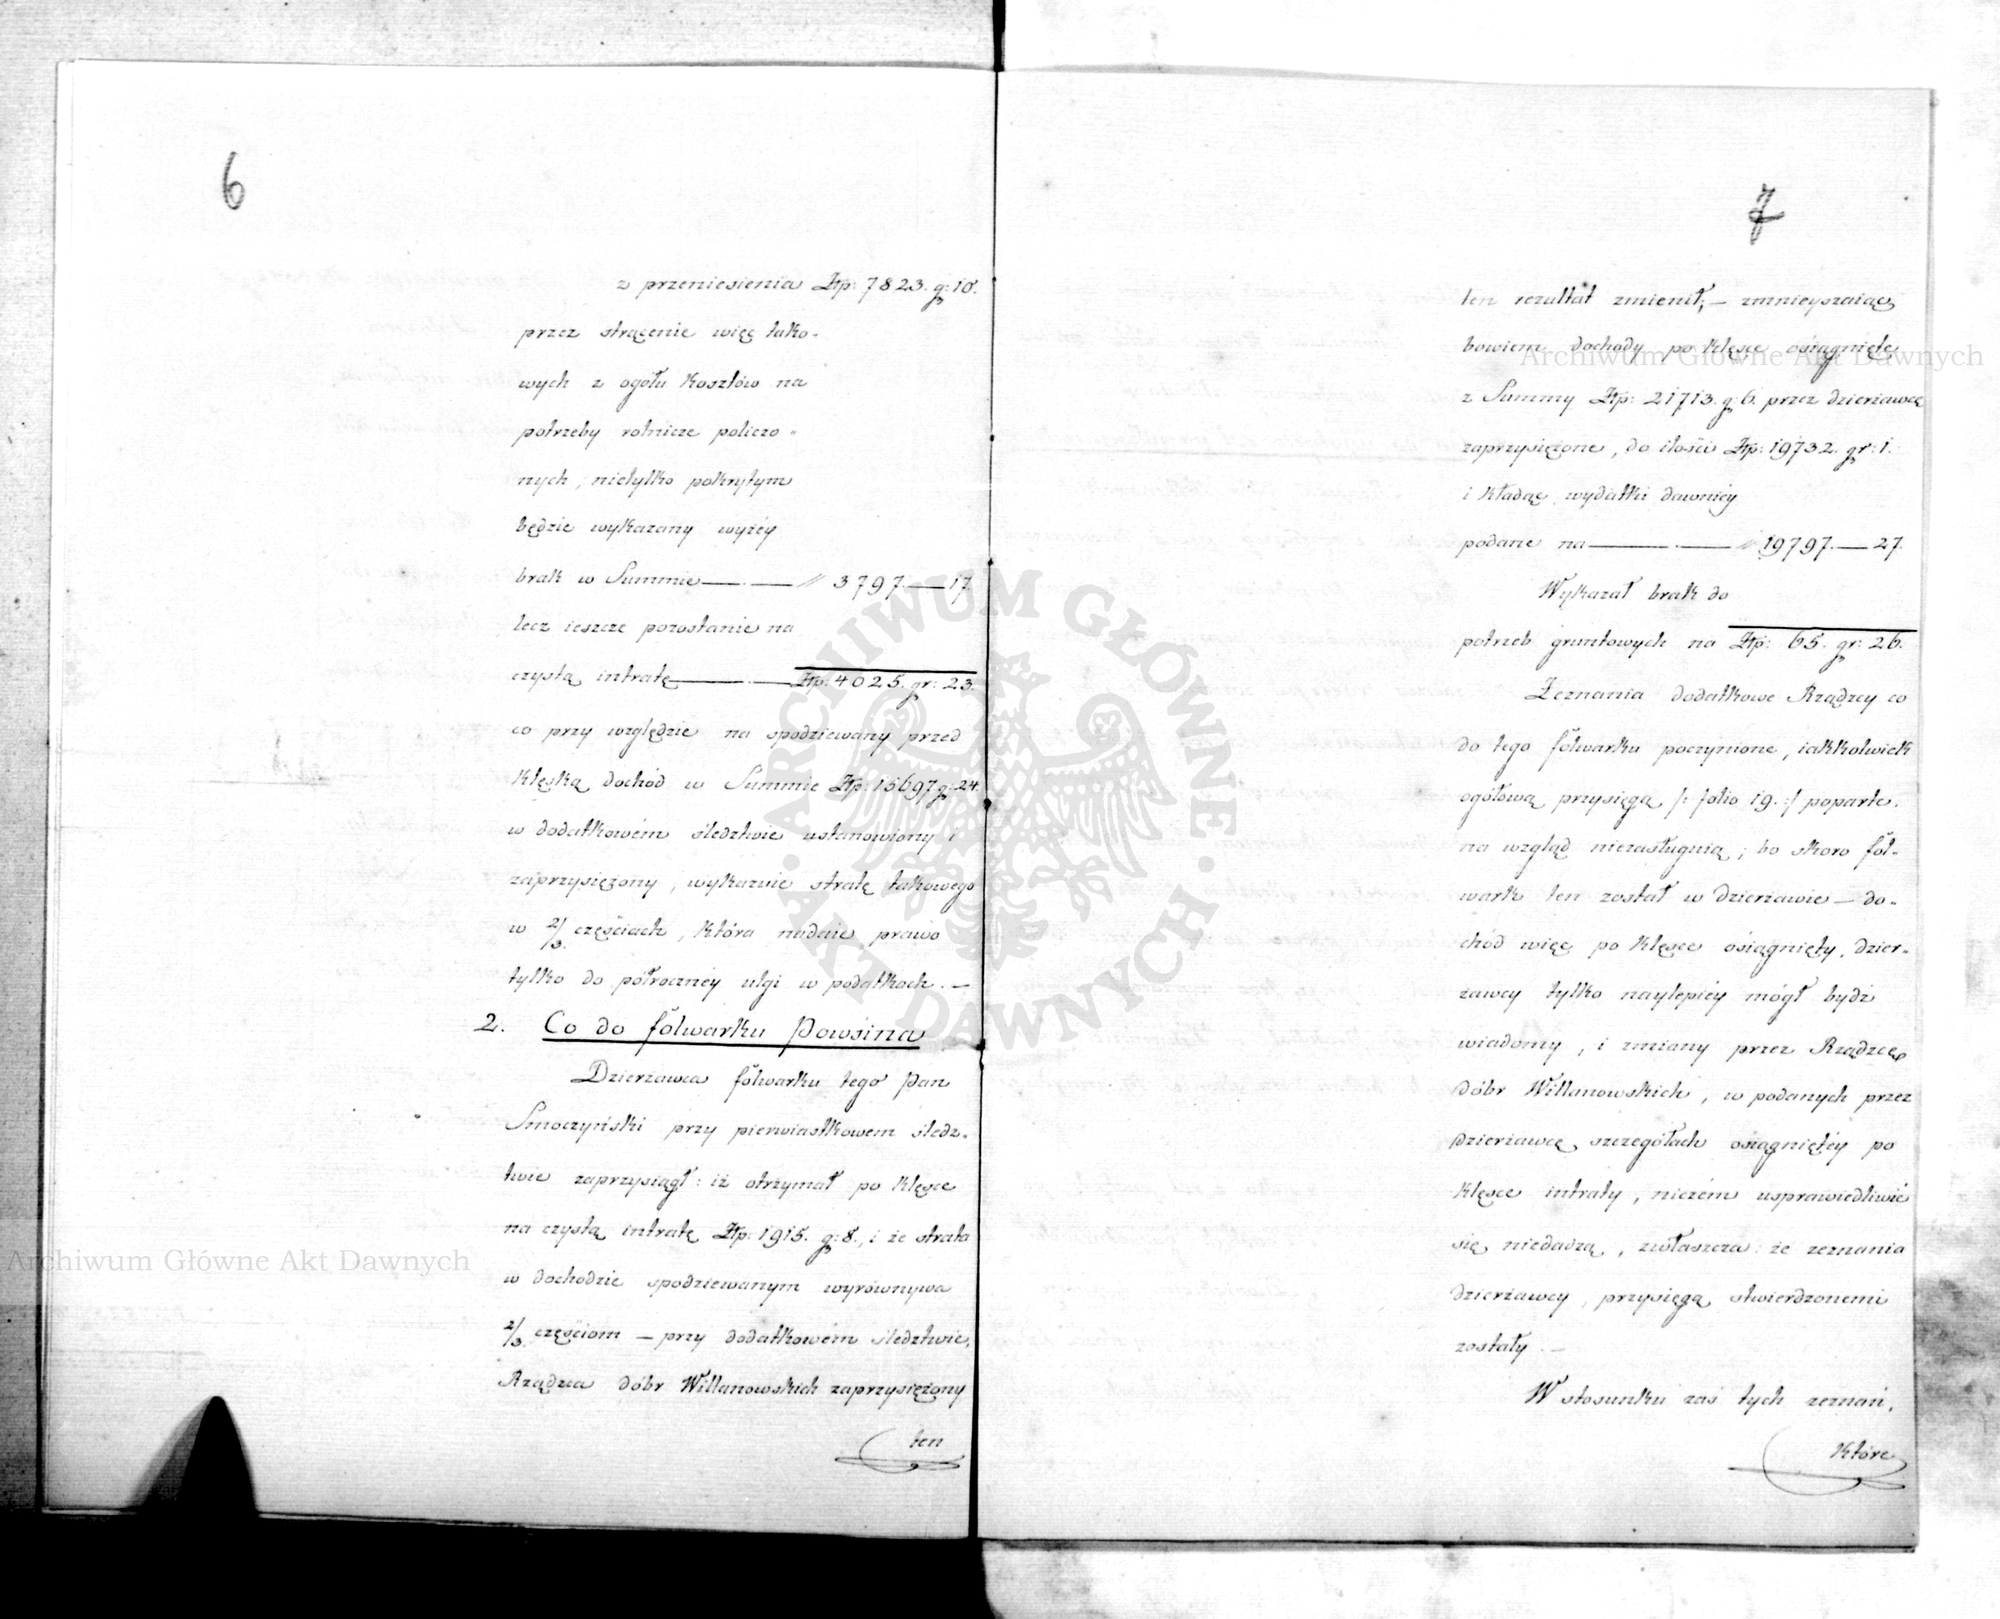 6
z przeniesienia Złp: 7823. g: 10.
przez strącenie więc tako-
wych z ogółu kosztów na
potrzeby rolnicze policzo-
nych, nietylko pokrytym
będzie wykazany wyżéy
brak w Summie —.— // 3797.—17.
lecz ieszcze pozostanie na
czystą intratę —.— Złp: 4025. gr: 23.
co przy względzie na spodziewany przed
klęską dochód w Summie Złp: 15697 g: 24.
w dodatkowém śledztwie ustanowiony i
zaprzysiężony, wykazuie stratę takowego
w 2/3. częściach, która nadaie prawo
tylko do półrocznéy ulgi w podatkach. —
2. Co do folwarku Powsina
Dzierżawca folwarku tego Pan
Smoczyński przy pierwiastkowem śledz-
twie zaprzysiągł: iż otrzymał po klęsce
na czystą intratę Złp: 1915. g: 8., i że strata
w dochodzie spodziewanym wyrównywa
2/3. częściom — przy dodatkowém śledztwie,
Rządzca dóbr Willanowskich zaprzysiężony
ten
7
ten rezultat zmienił; — zmnieyszaiąc
bowiem dochody po klęsce osiągnięte
z Summy Złp: 21713. g: 6. przez dzierżawcę
zaprzysiężone, do ilości Złp: 19732. gr: 1.
i kładąc wydatki dawniéy
podane na —.— // 19797.—27.
Wykazał brak do
potrzeb gruntowych na Złp: 65. gr: 26.
Zeznania dodatkowe Rządzcy co
do tego folwarku poczynione, iakkolwiek
ogółową przysięgą /: folio 19. :/ poparte.
na wzgląd niezasługuią; bo skoro fol-
wark ten został w dzierżawie — do-
chód więc po klęsce osiągnięty, dzier-
żawcy tylko naylepiéy mógł bydź
wiadomy, i zmiany przez Rządzcę
dóbr Willanowskich, w podanych przez
dzierżawcę szczegółach osiągniętéy po
klęsce intraty, niczém usprawiedliwić
się niedadzą, zwłaszcza: że zeznania
dzierżawcy, przysięgą stwierdzonemi
zostały. —
W stosunku zaś tych zeznań,
które
ARCHIWUM GŁÓWNE AKT DAWNYCH
Archiwum Główne Akt Dawnych
Archiwum Główne Akt Dawnych